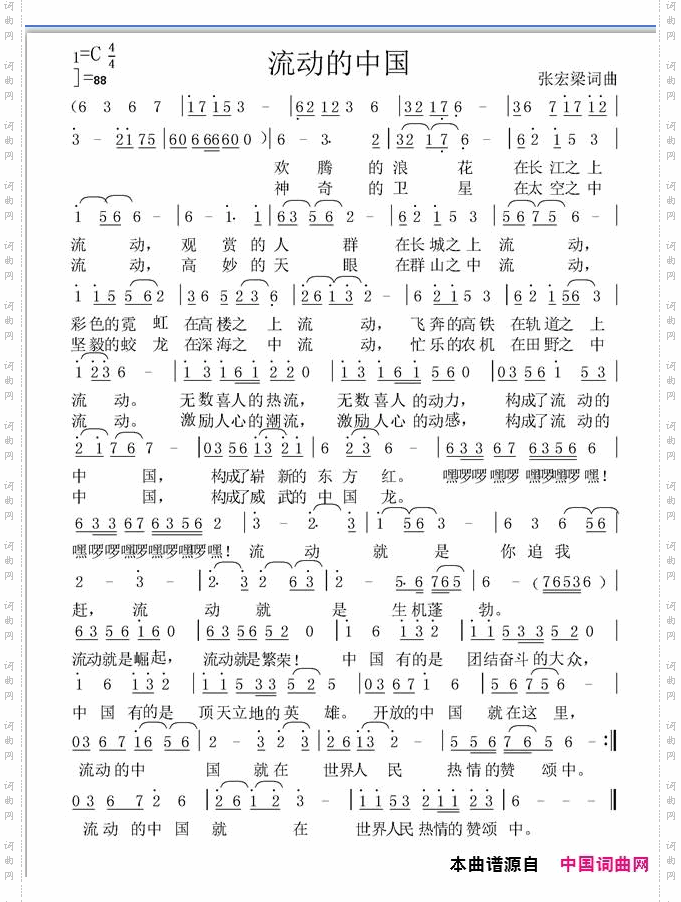 流动的中国
1=C 4/4
]=88
张宏梁词曲
(6 3 6 7 | 1 7 1 5 3 - | 6 2 1 2 3 6 | 3 2 1 7 6 - | 3 6 7 1 7 1 2 |
3 - 2 1 7 5 | 6 0 6 6 6 6 0 0 ) | 6 - 3· 2 | 3 2 1 7 6 - | 6 2 1 5 3 |
欢 腾 的 浪 花 在长江之上
神 奇 的 卫 星 在太空之中
1 5 6 6 - | 6 - 1· 1 | 6 3 5 6 2 - | 6 2 1 5 3 | 5 6 7 5 6 - |
流 动， 观 赏 的 人 群 在长城之上 流 动，
流 动， 高 妙 的 天 眼 在群山之中 流 动，
1 1 5 5 6 2 | 3 6 5 2 3 6 | 2 6 1 3 2 - | 6 2 1 5 3 | 6 2 1 5 6 3 |
彩色的霓 虹 在高楼之 上 流 动， 飞奔的高铁 在轨道之 上
坚毅的蛟 龙 在深海之 中 流 动， 忙乐的农机 在田野之 中
1 2 3 6 - | 1 3 1 6 1 2 2 0 | 1 3 1 6 1 5 5 0 | 0 3 5 6 1 3 |
流 动。 无数喜人的热流， 无数喜人的动力， 构成了流 动的
流 动。 激励人心的潮流， 激励人心的动感， 构成了流 动的
2 1 7 6 7 - | 0 3 5 6 1 3 2 1 | 6 2 3 6 - | 6 3 3 6 7 6 3 5 6 |
中 国， 构成了崭 新的 东 方 红。 嘿啰啰 嘿啰 嘿啰嘿啰 嘿！
中 国， 构成了威 武的 中 国 龙。
6 3 3 6 7 6 3 5 6 2 | 3 - 2· 3 | 1 5 6 3 - | 6 3 6 5 6 |
嘿啰啰嘿啰嘿啰嘿啰嘿！ 流 动 就 是 你 追 我
2 - 3 - | 2· 3 2 6 3 | 2 - 5· 6 7 6 5 | 6 - (7 6 5 3 6 ) |
赶， 流 动 就 是 生机蓬 勃。
6 3 5 6 1 6 0 | 6 3 5 6 5 2 0 | 1 6 1 3 2 | 1 1 5 3 5 2 0 |
流动就是崛起， 流动就是繁荣！ 中 国 有的是 团结奋斗的大众，
1 6 1 3 2 | 1 1 5 3 3 5 2 5 | 0 3 6 7 1 6 | 5 6 7 5 6 - |
中 国 有的是 顶天立地的英 雄。 开放的中 国 就在这 里，
0 3 6 7 1 6 5 6 | 2 - 3 3 | 2 6 1 3 2 - | 5 5 6 7 6 5 6 - :||
流动的中 国 就在 世界人 民 热情的赞 颂中。
0 3 6 7 2 | 2 6 1 2 3 - | 1 1 5 3 2 1 1 2 3 | 6 - - - ||
流动 的中国 就 在 世界人民 热情的赞颂 中。
本曲谱源自 中国词曲网